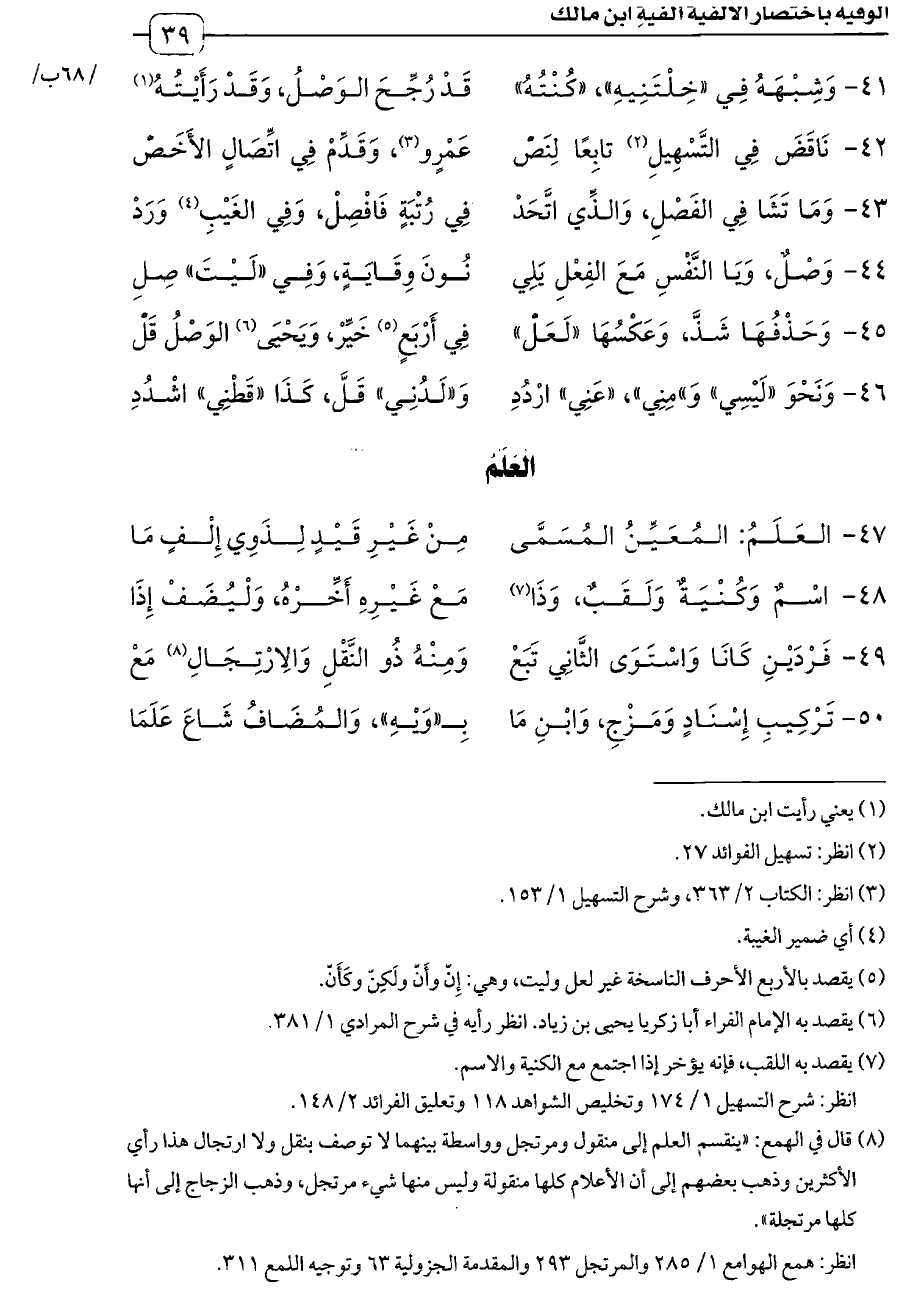 الوفية باختصار الألفية ألفية ابن مالك
٣٩
٤١- وَشِبْهَهُ فِي «خِلْتَنِيهِ»، «كُنْتُهُ» قَدْ رُجِّحَ الوَصْلُ، وَقَدْ رَأَيْتُهُ(١) /٦٨ب/
٤٢- نَاقَضَ فِي التَّسْهِيلِ(٢) تابِعًا لِنَصّْ عَمْرٍو(٣)، وَقَدِّمْ فِي اتِّصَالٍ الأَخَصّْ
٤٣- وَمَا تَشَا فِي الفَصْلِ، وَالَّذِي اتَّحَدْ فِي رُتْبَةٍ فَافْصِلْ، وَفِي الغَيْبِ(٤) وَرَدْ
٤٤- وَصْلٌ، وَيَا النَّفْسِ مَعَ الفِعْلِ يَلِي نُونَ وِقَايَةٍ، وَفِي «لَيْتَ» صِلِ
٤٥- وَحَذْفُهَا شَذَّ، وَعَكْسُهَا «لَعَلّْ» فِي أَرْبَعٍ(٥) خَيِّرْ، وَيَحْيَى(٦) الوَصْلُ قَلّْ
٤٦- وَنَحْوَ «لَيْسِي» وَ«مِنِي»، «عَنِي» ارْدُدِ وَ«لَدُنِي» قَلَّ، كَذَا «قَطْنِي» اشْدُدِ
العَلَمُ
٤٧- العَلَمُ: المُعَيِّنُ المُسَمَّى مِنْ غَيْرِ قَيْدٍ لِذَوِي إِلْفٍ مَا
٤٨- اسْمٌ وَكُنْيَةٌ وَلَقَبٌ، وَذَا(٧) مَعْ غَيْرِهِ أَخِّرْهُ، وَلْيُضَفْ إِذَا
٤٩- فَرْدَيْنِ كَانَا وَاسْتَوَى الثَّانِي تَبَعْ وَمِنْهُ ذُو النَّقْلِ وَالِارْتِجَالِ(٨) مَعْ
٥٠- تَرْكِيبِ إِسْنَادٍ وَمَزْجٍ، وَابْنِ مَا بِـ«وَيْهِ»، وَالمُضَافُ شَاعَ عَلَمَا
(١) يعني رأيت ابن مالك.
(٢) انظر: تسهيل الفوائد ٢٧.
(٣) انظر: الكتاب ٢/ ٣٦٣، وشرح التسهيل ١/ ١٥٣.
(٤) أي ضمير الغيبة.
(٥) يقصد بالأربع الأحرف الناسخة غير لعل وليت، وهي: إنّ وأَنّ ولَكِنّ وكَأَنّ.
(٦) يقصد به الإمام الفراء أبا زكريا يحيى بن زياد. انظر رأيه في شرح المرادي ١/ ٣٨١.
(٧) يقصد به اللقب، فإنه يؤخر إذا اجتمع مع الكنية والاسم.
انظر: شرح التسهيل ١/ ١٧٤ وتخليص الشواهد ١١٨ وتعليق الفرائد ٢/ ١٤٨.
(٨) قال في الهمع: «ينقسم العلم إلى منقول ومرتجل وواسطة بينهما لا توصف بنقل ولا ارتجال هذا رأي
الأكثرين وذهب بعضهم إلى أن الأعلام كلها منقولة وليس منها شيء مرتجل، وذهب الزجاج إلى أنها
كلها مرتجلة».
انظر: همع الهوامع ١/ ٢٨٥ والمرتجل ٢٩٣ والمقدمة الجزولية ٦٣ وتوجيه اللمع ٣١١.